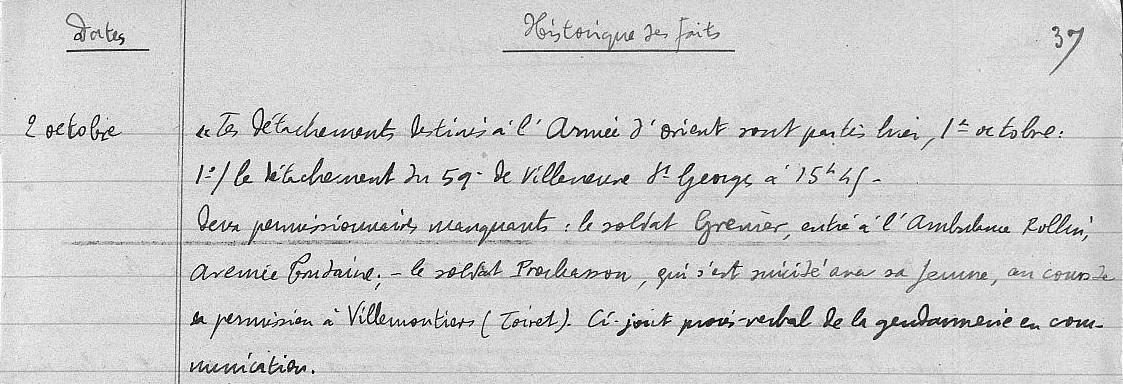 Dates
Historique des faits
37
2 octobre
"Les détachements destinés à l'Armée d'orient sont partis hier, 1er octobre:
1°/ le détachement du 59e de Villeneuve St Georges à 15h45-
Deux permissionnaires manquants : le soldat Grenier, entré à l'Ambulance Rollin,
Avenue Trudaine; - le soldat Prochasson, qui s'est suicidé avec sa femme, au cours de
sa permission à Villemontiers (Loiret). Ci-joint procès-verbal de la gendarmerie en com-
munication.